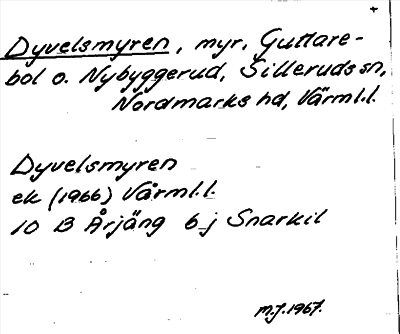 +
Dyvelsmyren, myr, Guttare-
bol o. Nybyggerud, Silleruds sn,
Nordmarks hd, Värml.l.
Dyvelsmyren
ek (1966) Värml.l.
10 B Årjäng 6 j Snarkil
M.J. 1967.